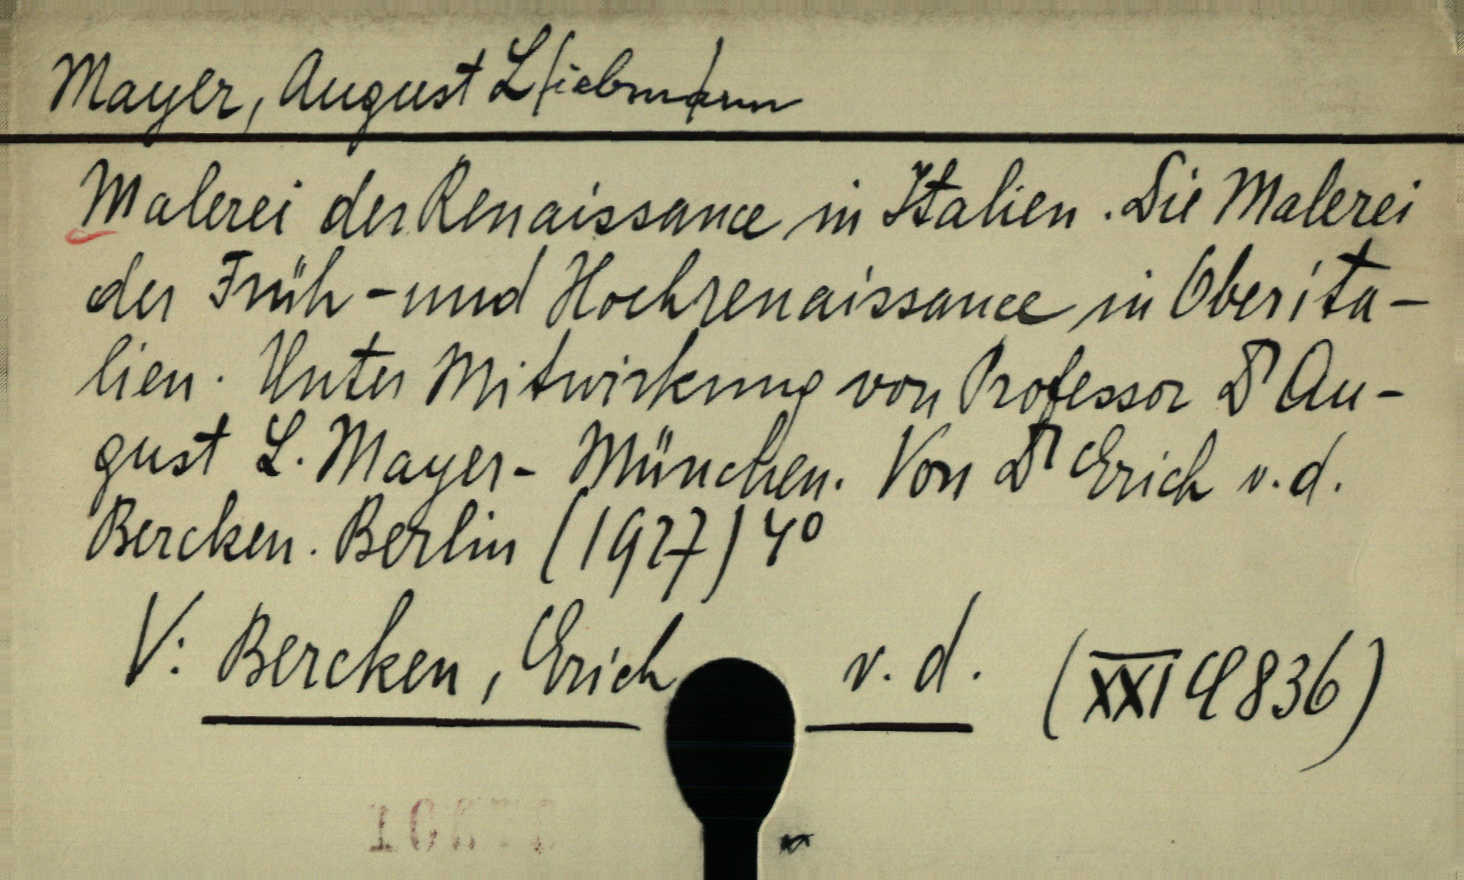 Mayer, August L(iebm)ann
Malerei der Renaissance in Italien. Die Malerei
der Früh- und Hochrenaissance in Oberita-
lien. Unter Mitwirkung von Professor Dr Au-
gust L. Mayer- München. Von Dr Erich v.d.
Bercken. Berlin (1927) 4°
V: Bercken, Erich v. d. (XXI C 836)